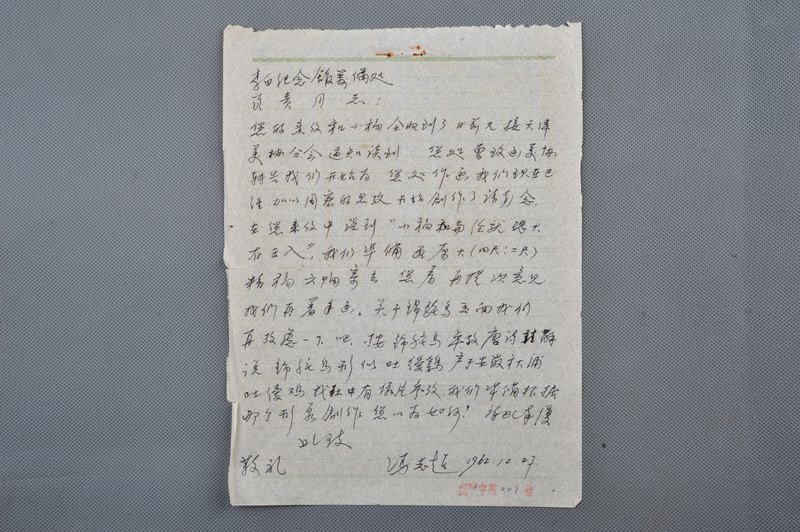 李白纪念馆筹备处
负责同志：
您的来信和小稿全收到了日前又接天津
美协分会通知谈到 您处曾致函美协
转告我们开始为 您处作画我们现在已
经加以周密的思考开始创作了请勿念
在您来信中谈到"小稿和 大
有出入"，我们准备画原大(四尺:二尺)
精稿 寄去 您看再提次意见
我们再着手画。关于锦鸵鸟画面我们
再考虑一下吧，按锦鸵鸟 唐诗
说锦鸵鸟形似吐绶鸡产于安徽秋浦
吐绶鸡我社中有 参考，我们准备根据
那个形象创作您以为如何？
此致
敬礼 冯志超 1962.12.27.
字第001号